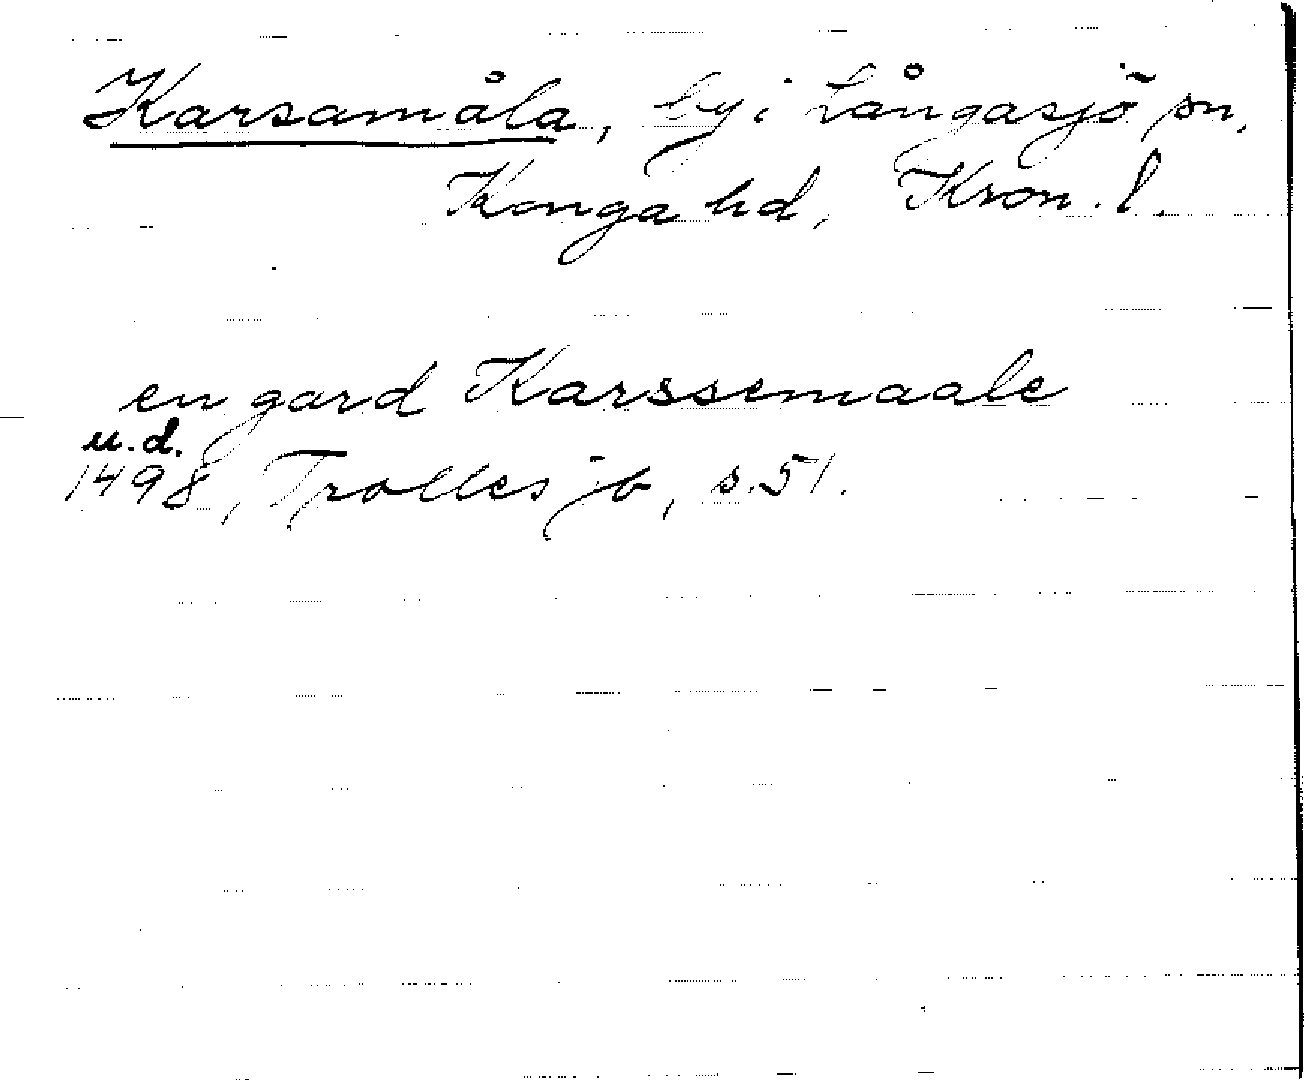 Karsamåla, by i Långasjö sn,
Konga hd, Kron. l.
en gard Karssemaale
u.d.
1498, Trolles jb, s. 51.